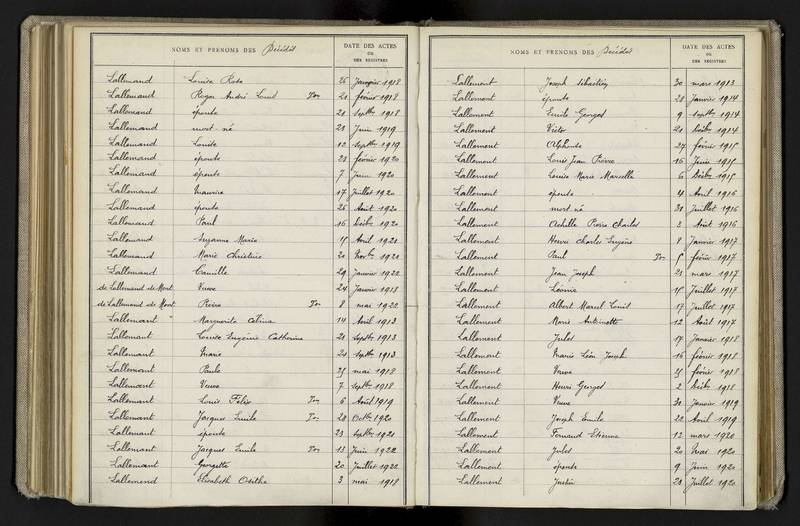 NOMS ET PRENOMS DES Décédés
DATE DES ACTES
OU
DES REGISTRES
Lallemand Louise Rose 26 Janvier 1918
Lallemand Roger André Louis Ton 21 février 1918
Lallemand épouse 21 Septbre 1918
Lallemand mort-né 21 Juin 1919
Lallemand Louise 12 Septbre 1919
Lallemand épouse 23 février 1920
Lallemand épouse 7 Juin 1920
Lallemand Maurice 17 Juillet 1920
Lallemand épouse 26 Août 1920
Lallemand Paul 16 Décbre 1920
Lallemand Suzanne Marie 15 Avril 1921
Lallemand Marie Christine 20 Novbre 1921
Lallemand Camille 29 Janvier 1922
de Lallemand de Mont Veuve 24 Janvier 1913
de Lallemand de Mont Pierre Ton 8 mai 1922
Lallemant Marguerite 14 Avril 1913
Lallemant Louise Eugénie Catherine 21 Septbre 1913
Lallemant Marie 21 Septbre 1913
Lallemant Paule 25 mai 1918
Lallemant Veuve 7 Septbre 1918
Lallemant Louis Félix Ton 6 Août 1919
Lallemant Jacques Emile Ton 28 Octbre 1920
Lallemant épouse 23 Septbre 1921
Lallemant Jacques Emile Ton 13 Juin 1922
Lallemant Georgette 20 Juillet 1922
Lallemend Elisabeth 3 mai 1918
NOMS ET PRENOMS DES Décédés
DATE DES ACTES
OU
DES REGISTRES
Lallement Joseph Sébastien 30 mars 1913
Lallement épouse 28 Janvier 1914
Lallement Emile Georges 9 Septbre 1914
Lallement Victor 21 Décbre 1914
Lallement Alphonse 27 février 1915
Lallement Louis Jean Pierre 16 Juin 1915
Lallement Louise Marie Marcelle 6 Décbre 1915
Lallement épouse 4 Avril 1916
Lallement mort né 31 Juillet 1916
Lallement Achille Pierre Charles 3 Août 1916
Lallement Henri Charles Eugène 8 Janvier 1917
Lallement Paul Ton 5 février 1917
Lallement Jean Joseph 21 mars 1917
Lallement Léonie 15 Juillet 1917
Lallement Albert Marcel Louis 17 Juillet 1917
Lallement Marie Antoinette 12 Août 1917
Lallement Jules 17 Janvier 1918
Lallement Marie Léon Joseph 16 février 1918
Lallement Veuve 25 février 1918
Lallement Henri Georges 2 Décbre 1918
Lallement Veuve 31 Janvier 1919
Lallement Joseph Emile 22 Avril 1919
Lallement Fernand Etienne 12 mars 1920
Lallement Jules 20 Mai 1920
Lallement épouse 9 Juin 1920
Lallement Justin 21 Juillet 1920